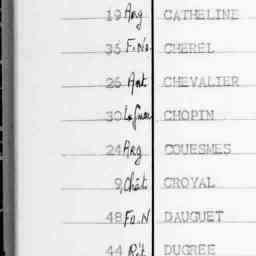 19 Arg CATHELINE
35 F.No CHEREL
26 Ant CHEVALIER
30 CHOPIN
24 Arg COUESMES
9 Chât CROYAL
48 Fo.N DAUGUET
44 DUGREE